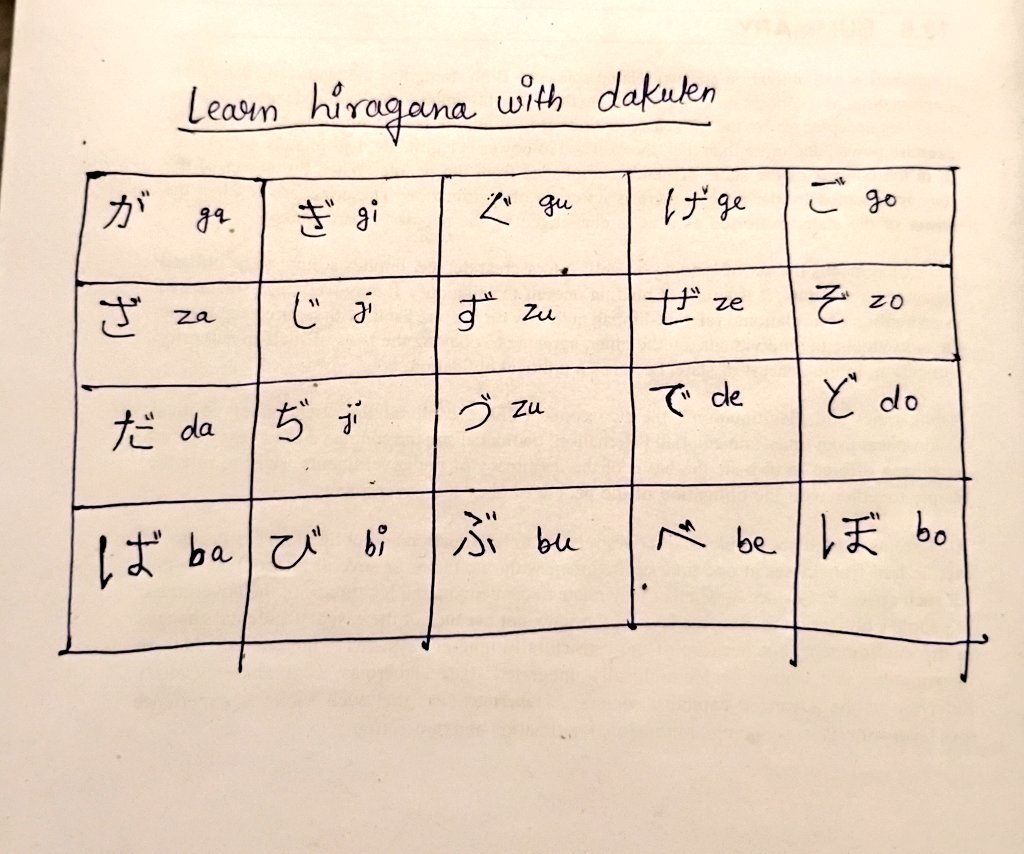 Learn hiragana with dakuten
が ga ぎ gi ぐ gu げ ge ご go
ざ za じ ji ず zu ぜ ze ぞ zo
だ da ぢ ji づ zu で de ど do
ば ba び bi ぶ bu べ be ぼ bo